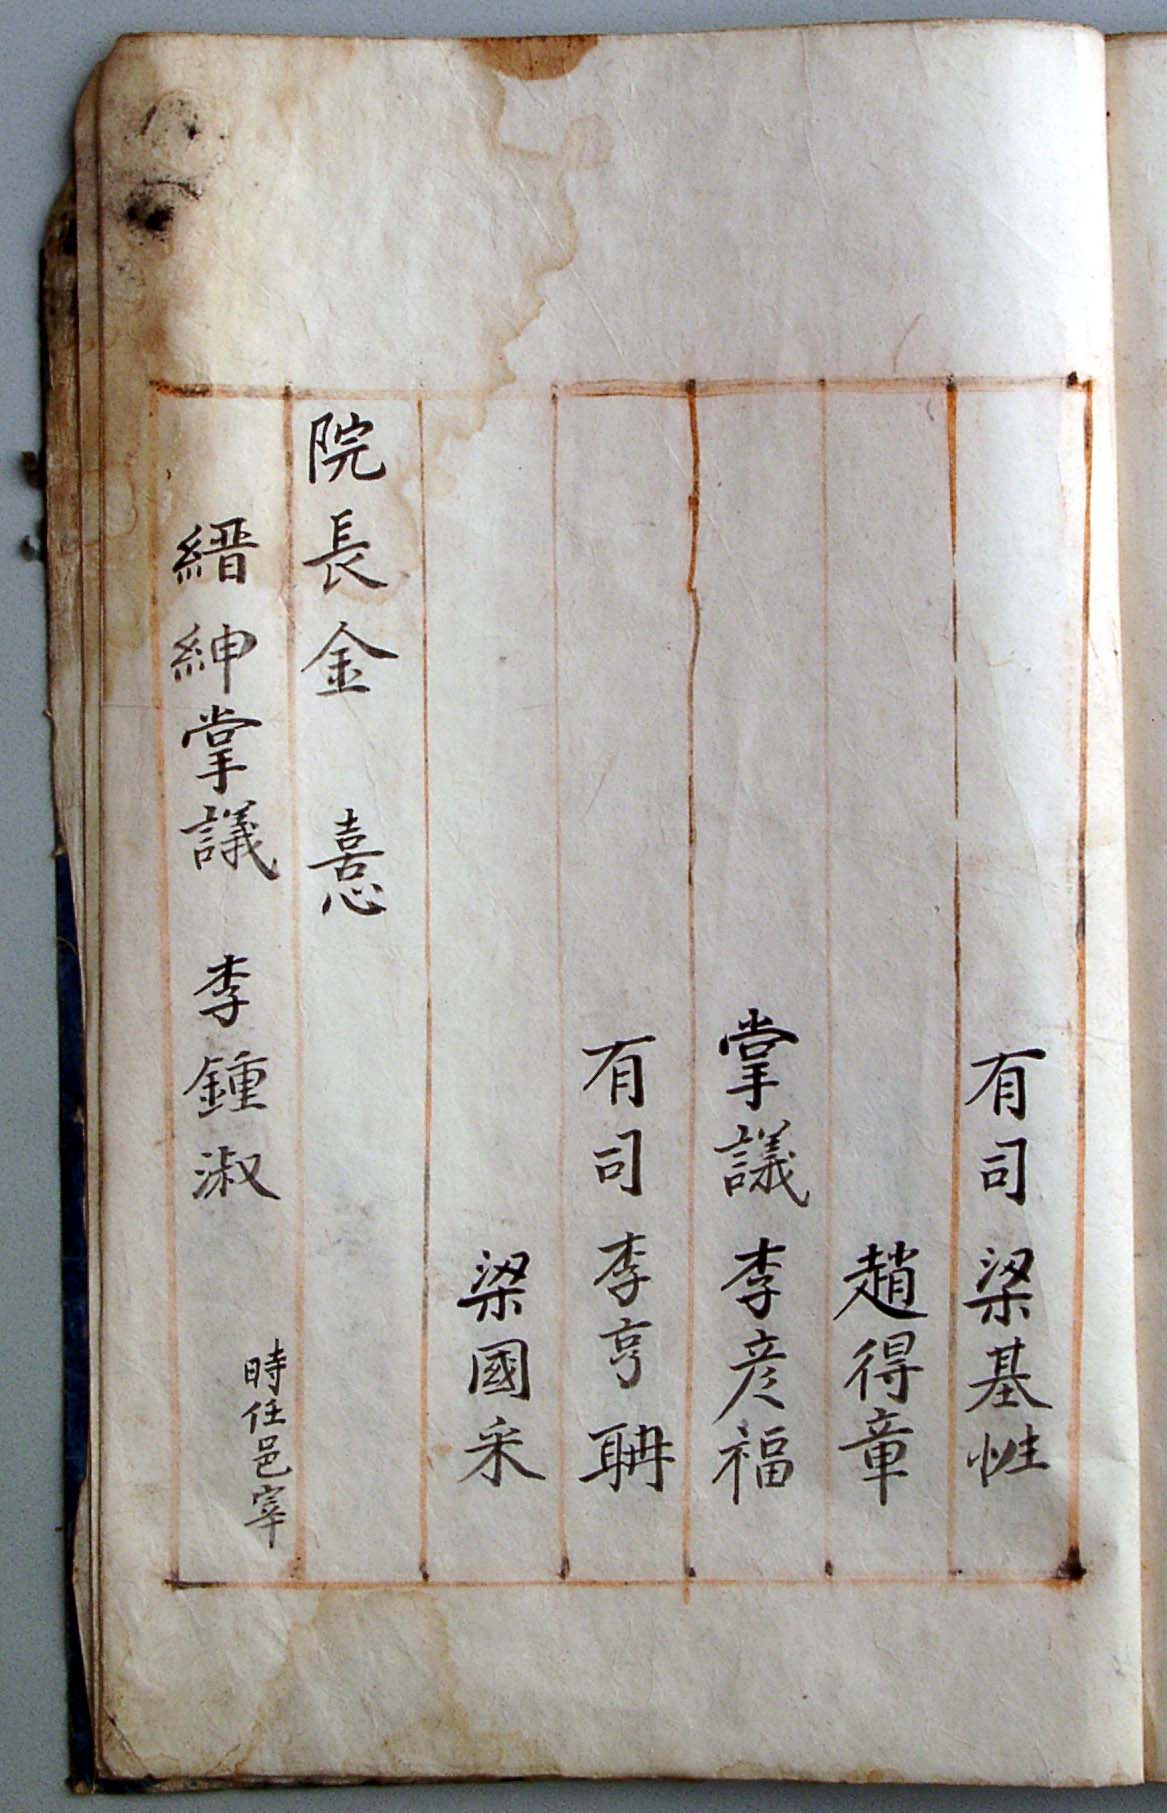 有司 梁基性
趙得章
掌議 李彦福
有司 李亨聃
梁國采
院長金 憙
縉紳掌議 李鍾淑 時任邑宰